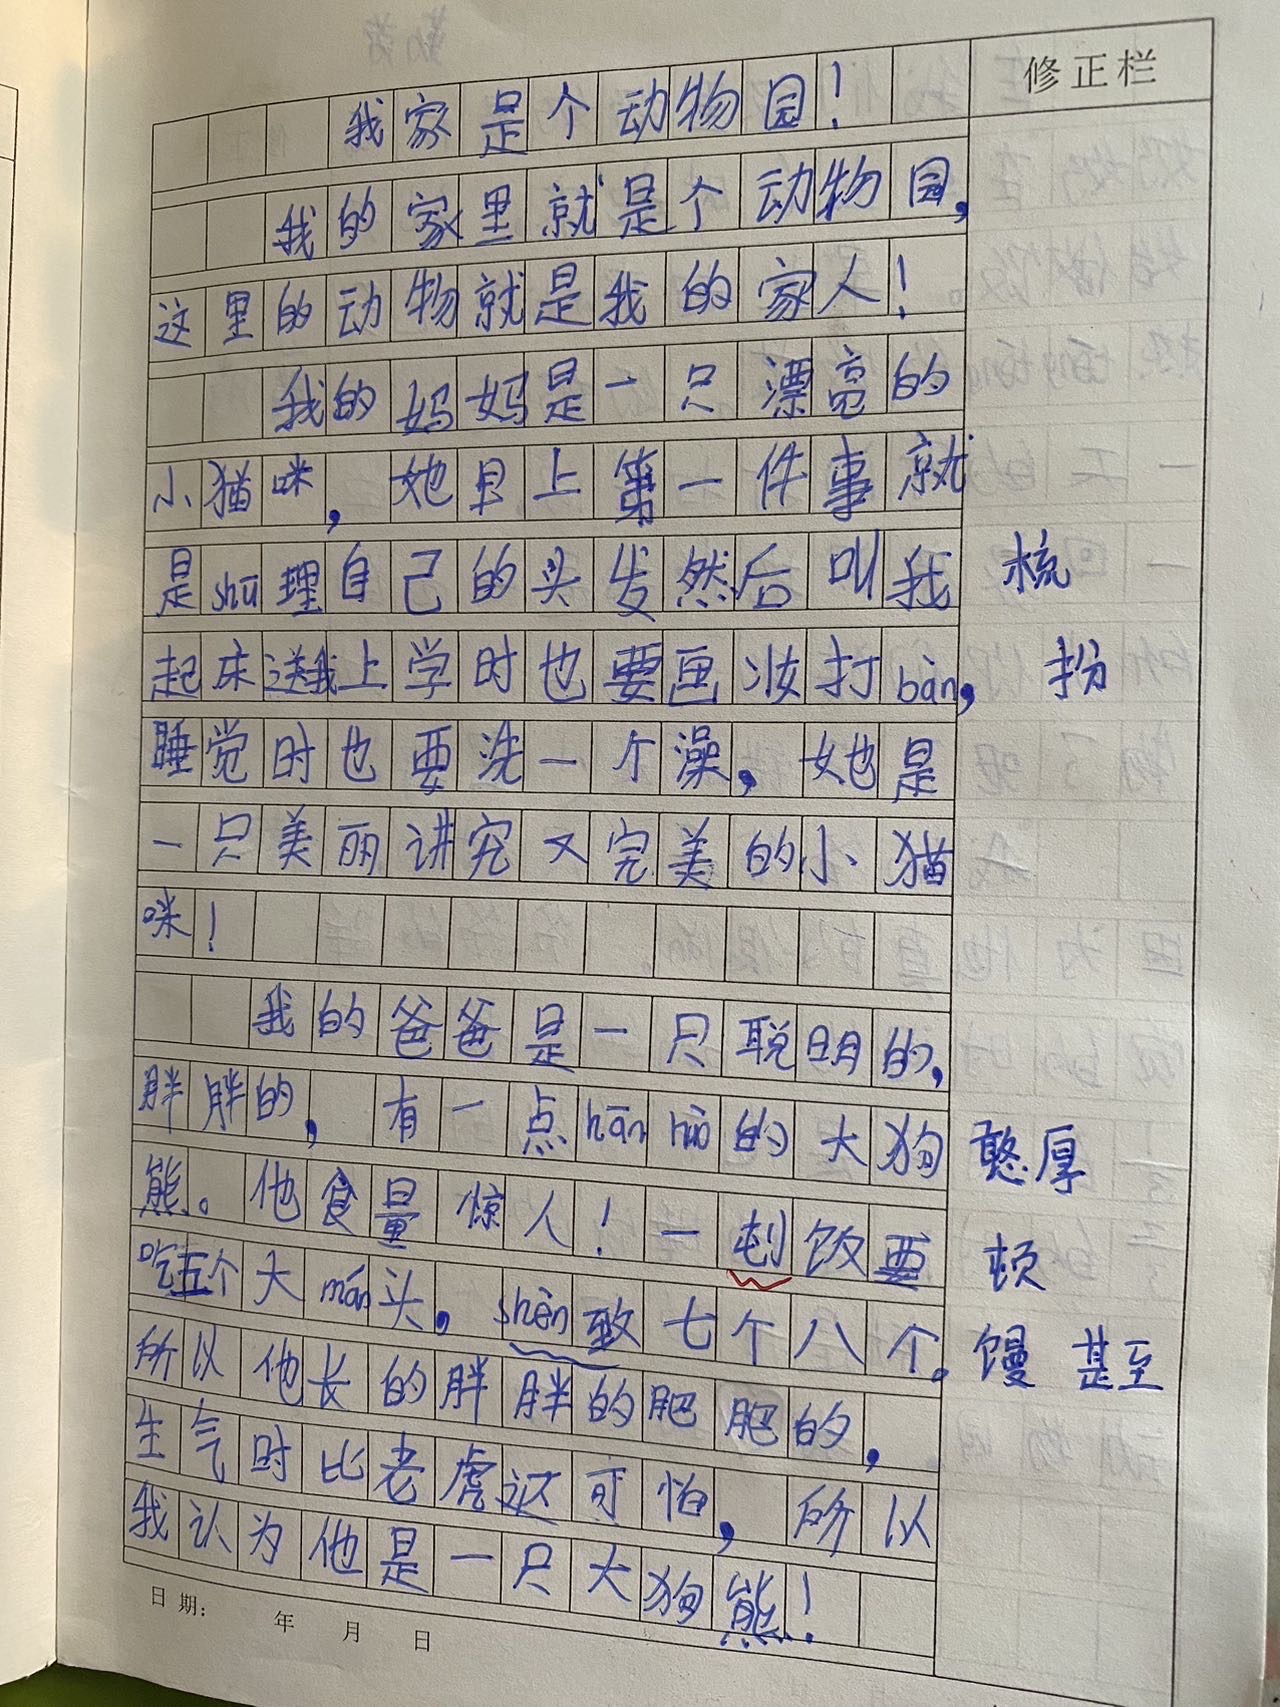 修正栏
我家是个动物园！
我的家里就是个动物园，
这里的动物就是我的家人！
我的妈妈是一只漂亮的
小猫咪，她早上第一件事就
是shū理自己的头发然后叫我 梳
起床送我上学时也要画妆打bàn， 扮
睡觉时也要洗一个澡，她是
一只美丽讲究又完美的小猫
咪！
我的爸爸是一只聪明的，
胖胖的，有一点hān hòu的大狗 憨厚
熊。他食量惊人！一饭要 顿
吃五个大mán头，shèn致七个八个。 馒 甚至
所以他长的胖胖的肥肥的，
生气时比老虎还可怕，所以
我认为他是一只大狗熊！
日期： 年 月 日